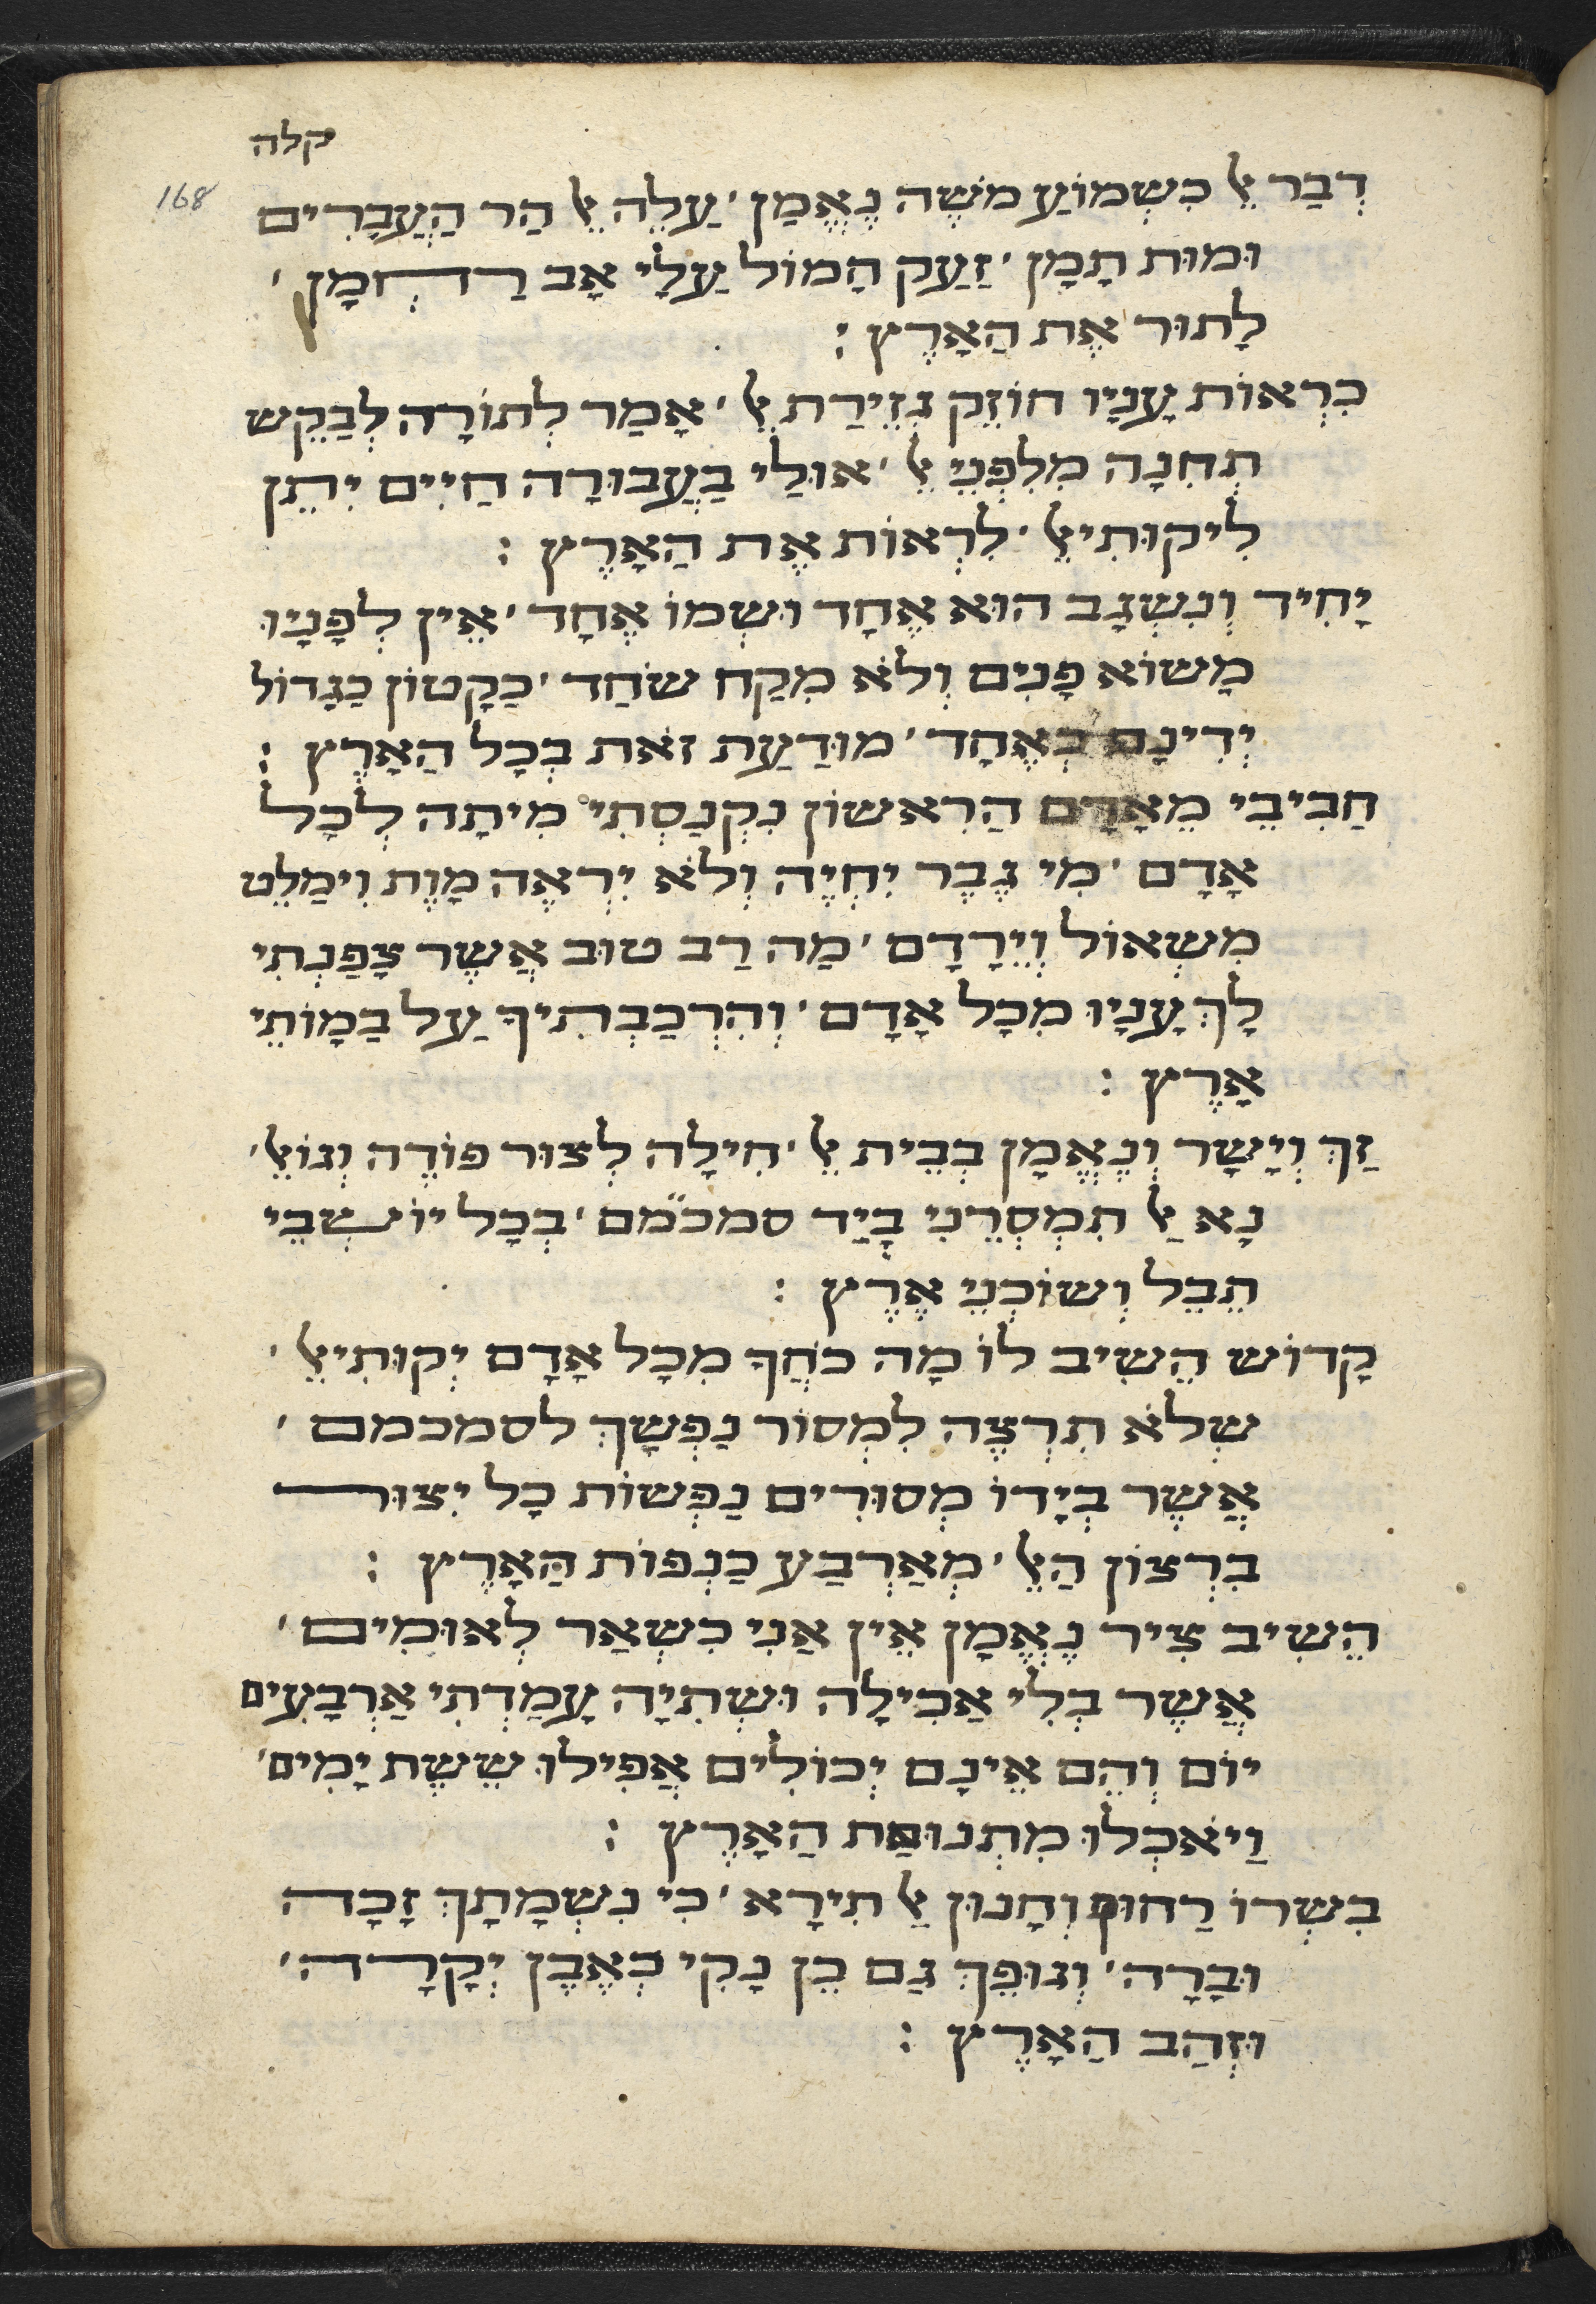 קלה
168
דְבַר אֵל כִשְמוֹעַ מֹשֶה נֶאֱמַן ׳ עַלֵה אֵל הַר הַעֲבָרִים
וּמוּת תָמָן ׳ זַעַק הָמוֹל עַלָי אָב רַחְמָן ׳
לָתוּר אֶת הַאָרֶץ :
כִרְאוֹת עָנָיו חוֹזֵק גְזֵירַת אֵל ׳ אָמַר לְתוֹרָה לְבַקֵש
תְחִנָה מִלִפְנֵי אֵל ׳ אוּלַי בַעֲבוּרָה חַיִים יִתֵן
לִיקוּתִיאֵל ׳ לִרְאוֹת אֶת הַאָרֶץ :
יָחִיד וְנִשְגָב הוּא אֶחָד וּשְמוֹ אֶחָד ׳ אֵין לְפָנָיו
מָשוֹא פָנִים וְלֹא מִקַח שֹחַד ׳ כַקָטוֹן כַגָדוֹל
יְדִינָם כְאֶחָד ׳ מוּדַעַת זֹאת בְכָל הַאָרֶץ :
חַבִיבִי מֵאָדָם הַרִאשוֹן נִקְנַסְתִי מִיתָה לְכָל
אָדָם ׳ מִי גֶבֶר יִחְיֶה וְלֹא יִרְאֶה מָוֶת וִימַלֵט
מִשְאוֹל וְיֵרָדָם ׳ מַה רַב טוּב אֲשֶר צָפַנְתִי
לָךְ עָנָיו מִכָל אָדָם ׳ וְהִרְכַבְתִיךָ עַל בַמוֹתֵי
אָרֶץ :
זַךְ וְיָשָר וְנֶאֱמָן בְבֵית אֵל ׳ חִילָה לְצוּר פוֹדֶה וְגוֹאֵל ׳
נָא אַל תִמְסְרֵנִי בְיַד סמכ״מם ׳ בְכָל יוֹשְבֵי
תֵבֵל וְשוֹכְנֵי אֶרֶץ :
קָדוֹש הֵשִיב לוֹ מָה כֹחֲךָ מִכָל אָדָם יְקוּתִיאֵל ׳
שְלֹא תִרְצֶה לִמְסוֹר נַפְשָךְ לסמכמם ׳
אֲשֶר בְיָדוֹ מְסוּרִים נַפְשוֹת כָל יִצוּר
בִרְצוֹן הַאֵל ׳ מְאַרְבַע כַנְפוֹת הַאָרֶץ :
הֵשִיב צִיר נֶאֱמָן אֵין אַנִי כִשְאַר לְאוּמִים ׳
אֲשֶר בְלִי אַכִילָה וּשְתִיָה עָמַדְתִי אַרְבָעִים
יוֹם וְהֵם אֵינָם יְכוֹלִים אֲפִילוּ שֵשֶת יָמִים ׳
וַיֹאכְלוּ מִתְנוּבַת הַאָרֶץ :
בִשְרוֹ רַחוּם וְחָנוּן אַל תִירָא ׳ כִי נִשְמָתָךְ זָכָה
וּבָרָה ׳ וְגוּפֵךְ גַם כֵן נָקִי כְאֶבֶן יְקָרָה ׳
וּזְהַב הַאָרֶץ :